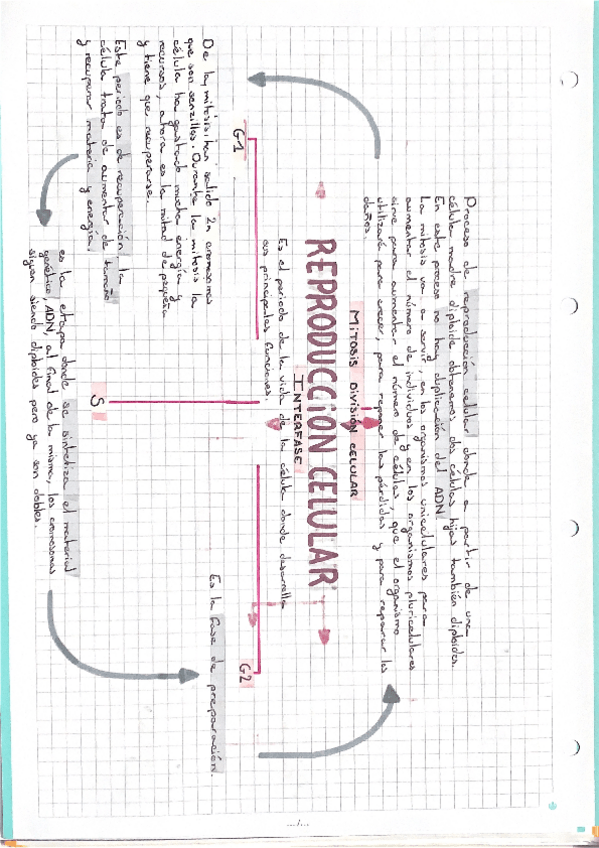 Proceso de reproducción celular donde a partir de una
célula madre diploide obtenemos dos células hijas también diploides.
En este proceso no hay duplicación del ADN
La mitosis va a servir, en los organismos unicelulares para
aumentar el número de individuos y en los organismos pluricelulares
sirve para aumentar el número de células, que el organismo
utilizará para crecer, para reponer las pérdidas y para reparar los
daños.
MITOSIS DIVISIÓN CELULAR
REPRODUCCIÓN CELULAR
INTERFASE
Es el periodo de la vida de la célula donde desarrolla
sus principales funciones.
G1
De la mitosis han salido 2n cromosomas
que son sencillos. Durante la mitosis la
célula ha gastado mucha energía y
recursos, ahora es la mitad de pequeña
y tiene que recuperarse.
Este periodo es de recuperación, la
célula trata de aumentar de tamaño
y recuperar materia y energía.
S
es la etapa donde se sintetiza el material
genético, ADN, al final de la misma, los cromosomas
siguen siendo diploides pero ya son dobles.
G2
Es la fase de preparación.
.../...